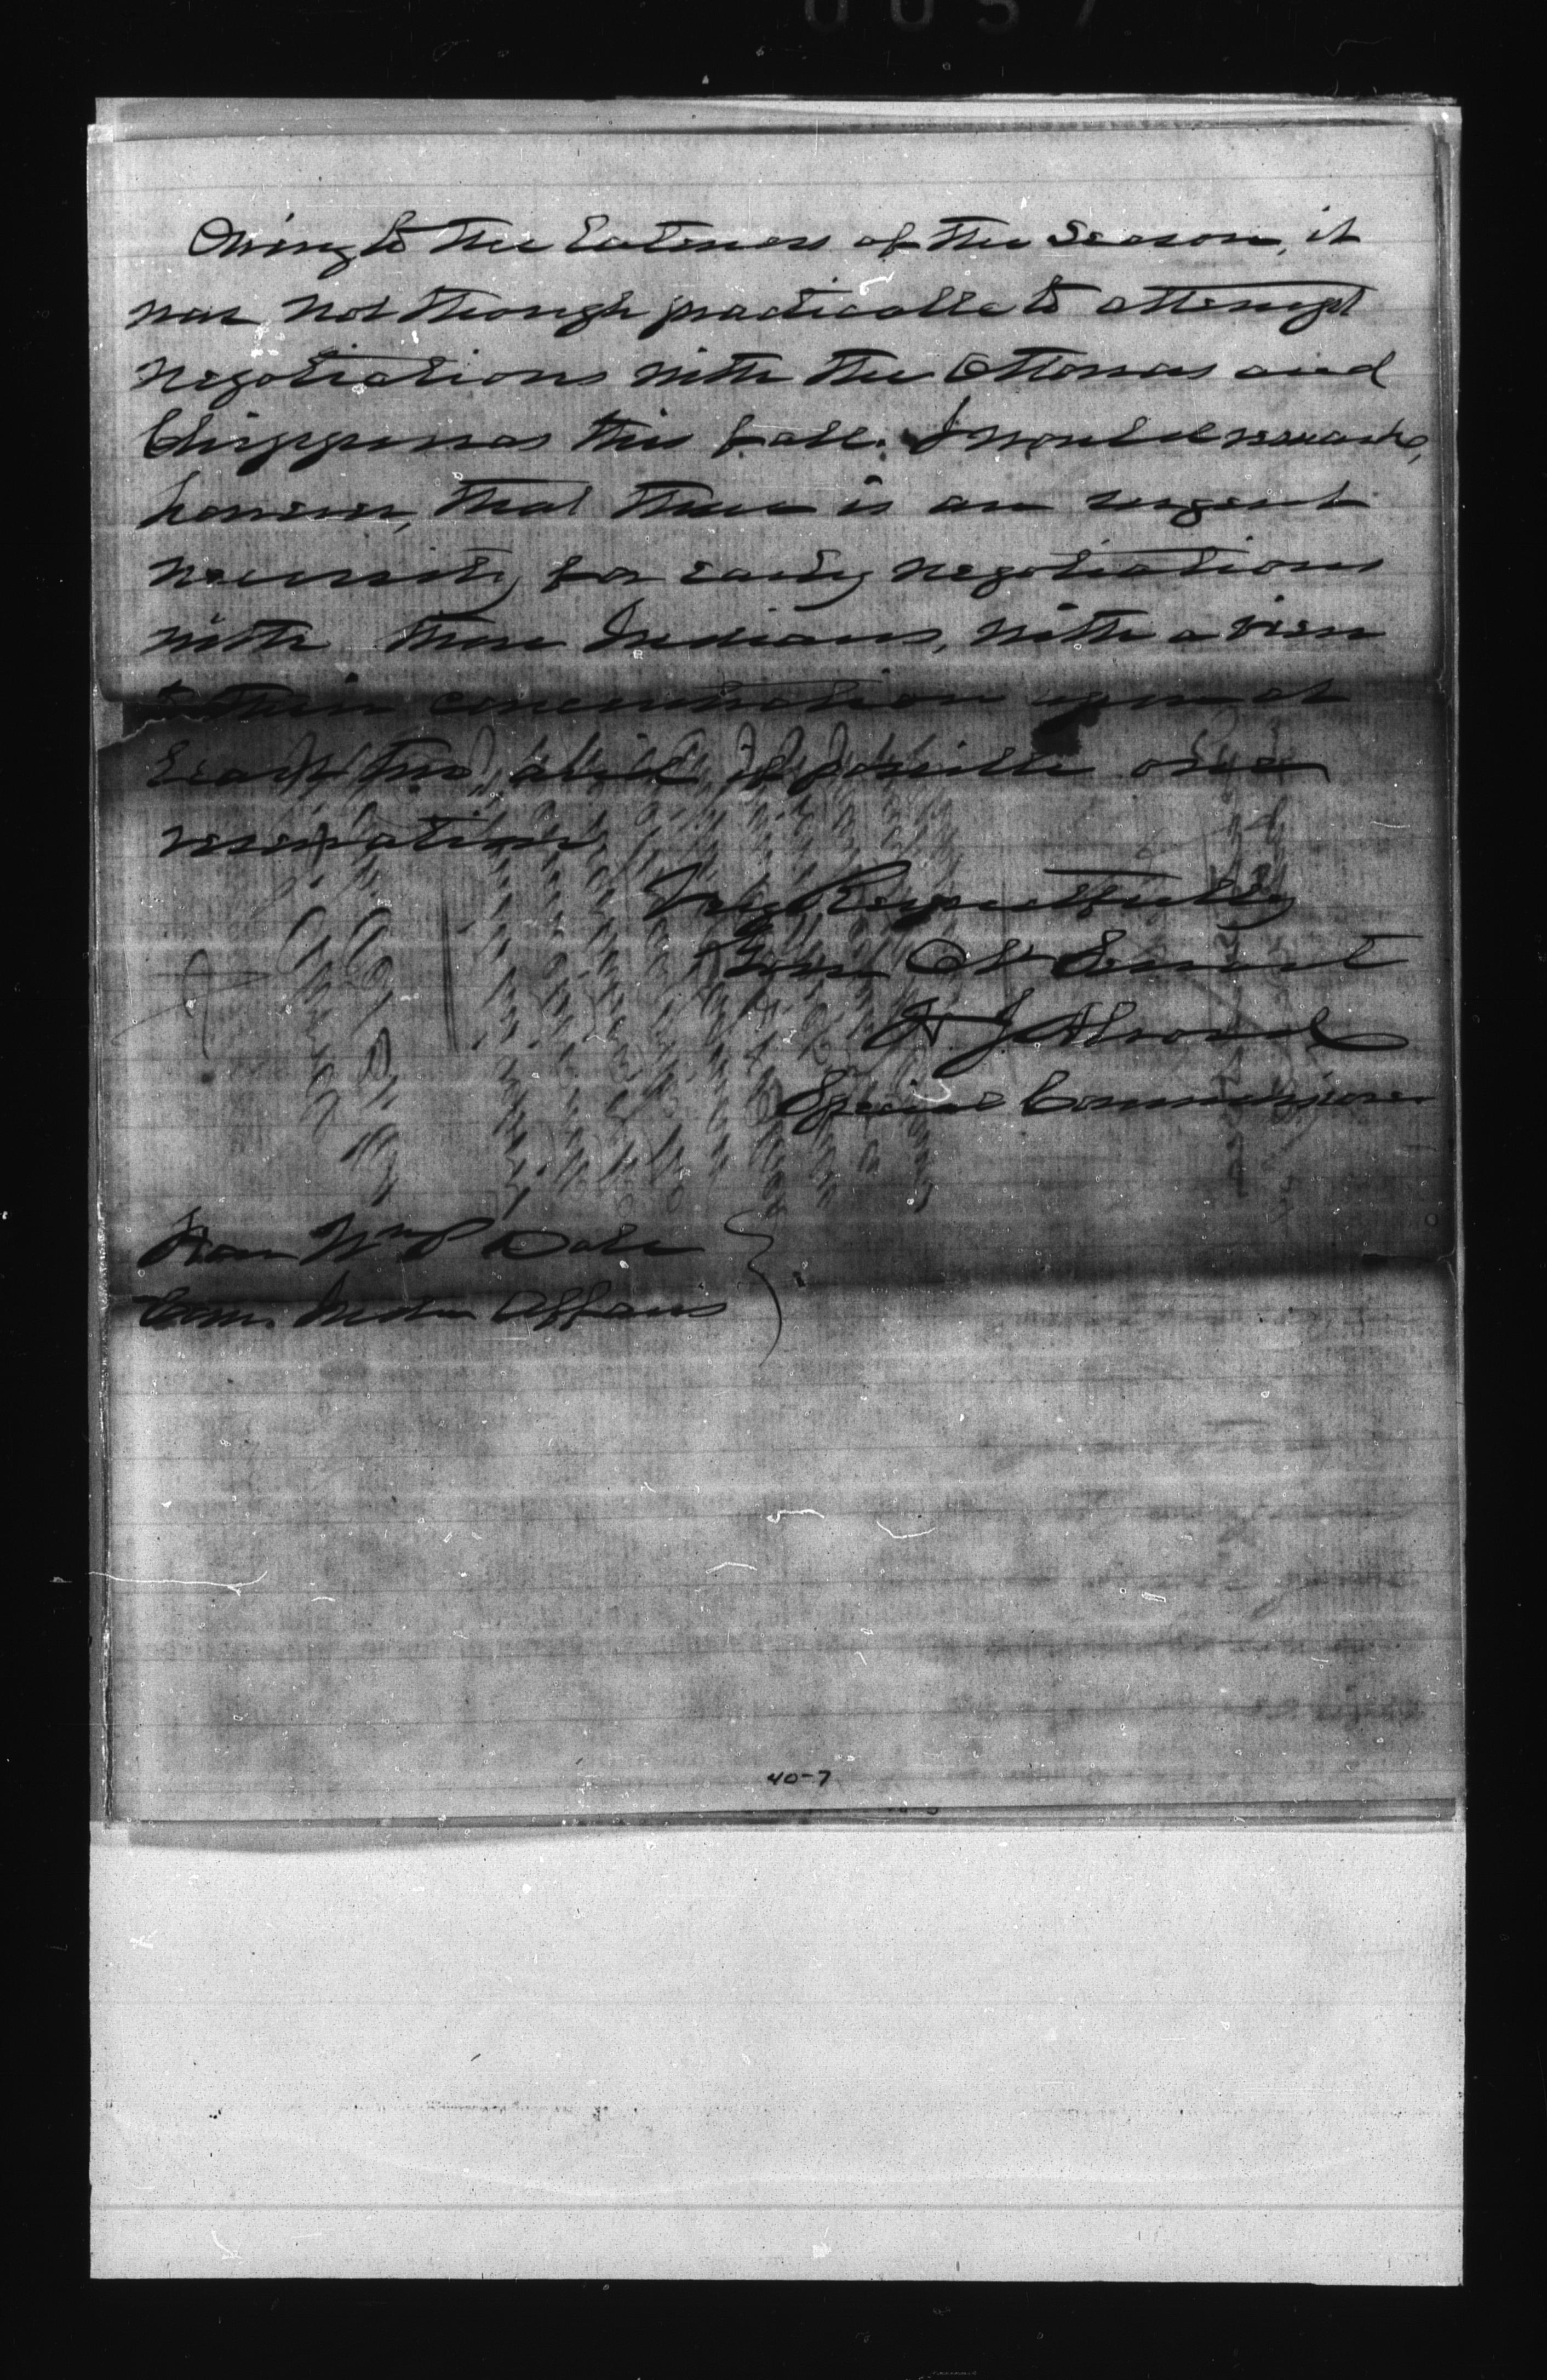 Owing to the lateness of the season, it
was not though practicable to attempt
negotiations with the Ottowas and
Chippewas this fall. I would remark,
however, that there is an urgent
necessity for early negotiations
with these Indians, with a view
to their concentration upon at
least two, and if possible one
reservation
Very Respectfully
Your Obt Servant
H. J. Alvord
Special Commissioner
Hon Wm P Dole
Com. Indn Affairs
40-7